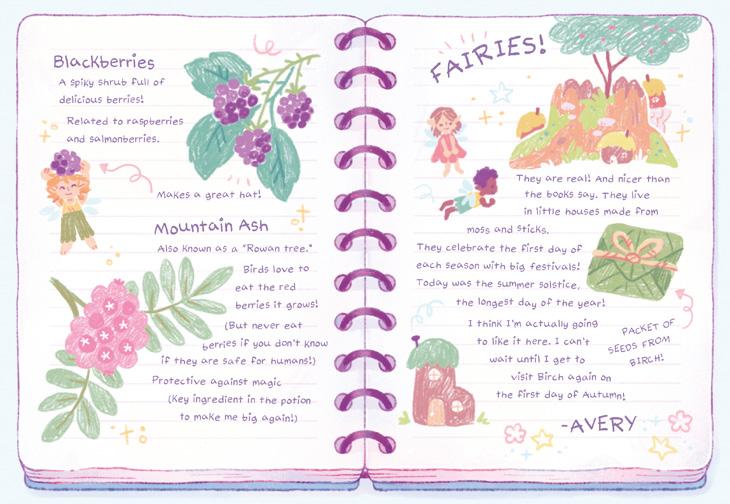 Blackberries
A spiky shrub full of
delicious berries!
Related to raspberries
and salmonberries.
Makes a great hat!
Mountain Ash
Also known as a "Rowan tree."
Birds love to
eat the red
berries it grows!
(But never eat
berries if you don't know
if they are safe for humans!)
Protective against magic
(Key ingredient in the potion
to make me big again!)
FAIRIES!
They are real! And nicer than
the books say. They live
in little houses made from
moss and sticks.
They celebrate the first day of
each season with big festivals!
Today was the summer solstice,
the longest day of the year!
PACKET OF
SEEDS FROM
BIRCH!
I think I'm actually going
to like it here. I can't
wait until I get to
visit Birch again on
the first day of Autumn!
-AVERY